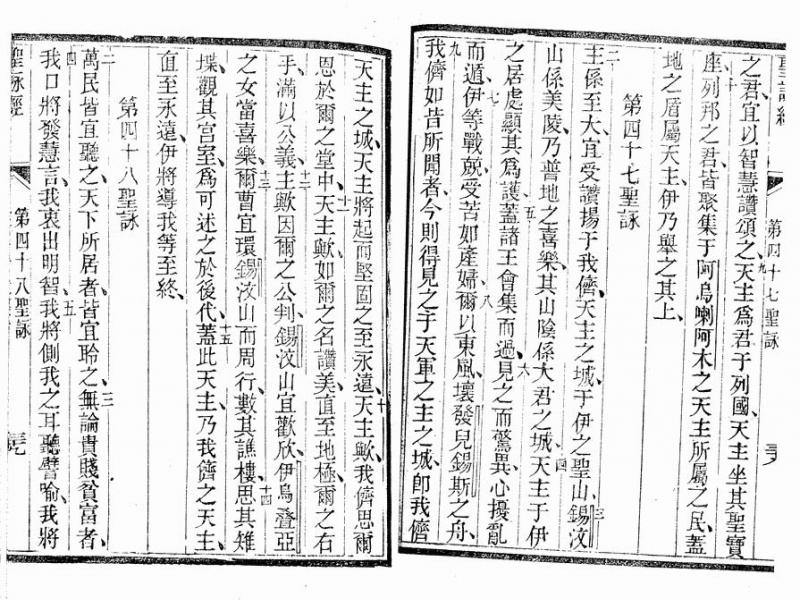 聖詠經 第四十七聖詠 三八
之君、宜以智慧讚頌之、九天主爲君于列國、天主坐其聖寶
座、十列邦之君、皆聚集于阿烏喇阿木之天主所屬之民、蓋
地之盾屬天主、伊乃舉之其上、
第四十七聖詠
二主係至大、宜受讚揚于我儕天主之城、于伊之聖山、三錫汶
山係美陵、乃普地之喜樂、其山陰係大君之城、四天主于伊
之居處、顯其爲護蓋、五諸王會集而過、六見之而驚異、心擾亂
而遁、七伊等戰兢、受苦如產婦、八爾以東風、壞發兒錫斯之舟、
九我儕如昔所聞者、今則得見之于天軍之主之城、卽我儕
天主之城、天主將起而堅固之至永遠、十天主歟、我儕思爾
恩於爾之堂中、十一天主歟、如爾之名、讚美直至地極、爾之右
手、滿以公義、十二主歟、因爾之公判、錫汶山宜歡欣、伊烏疊亞
之女當喜樂、十三爾曹宜環錫汶山而周行、數其譙樓、十四思其雉
堞、觀其宮室、爲可述之於後代、十五蓋此天主、乃我儕之天主、
直至永遠、伊將導我等至終、
第四十八聖詠
二萬民皆宜聽之、天下所居者、皆宜聆之、三無論貴賤貧富者、
四我口將發慧言、我衷出明智、五我將側我之耳聽譬喻、我將
聖詠經 第四十八聖詠 三九